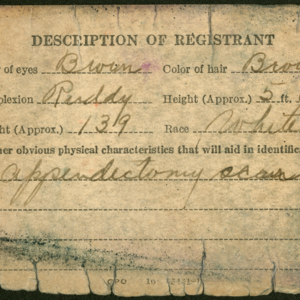 DESCRIPTION OF REGISTRANT
of eyes Brown Color of hair Brow
plexion Ruddy Height (Approx.) 5 ft.
ght (Approx.) 139 Race White
her obvious physical characteristics that will aid in identific
appendectomy scar
GPO 16